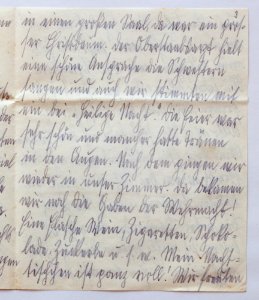 3
in einen großen Saal, da war ein gros-
ser Christbaum. der Oberstabsarzt hielt
eine schöne Ansprache die Schwestern
sangen und auch wir stimmten mit
ein bei „Heilige Nacht“. Die Feier war
sehr schön und mancher hatte Tränen
in den Augen. Nach dem gingen wir
wieder in unser Zimmer. da bekamen
wir noch die Gaben der Wehrmacht!
Eine Flasche Wein, Zigaretten, Schoko-
lade, Zuckerle u. s. w. Mein Nach-
tischchen ist ganz voll. Wir freuten